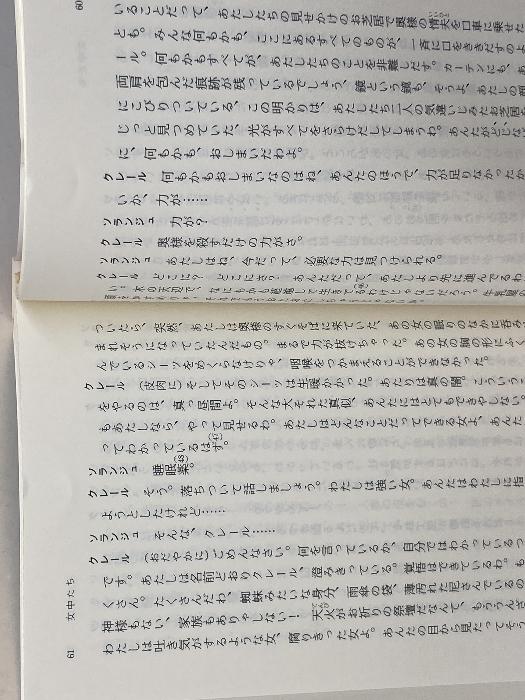 60
いることだって、あたしたちの見せかけのお芝居で奥様の情夫を口車に乗せた
とも。みんな何もかも、ここにあるすべてのものが、一斉に口をききだすのよ
ール。何もかもすべてが、あたしたちのことを非難しだす。カーテンにも、あ
両肩を包んだ痕跡が残っているでしょう、鏡という鏡も、そうよ、あたしの顔
にこびりついている、この明かりは、あたしたち二人の気違いじみたお芝居を
じっと見つめていた、光がすべてをさらけだしてしまうわ。あんたが
に、何もかも、おしまいだわよ。
クレール 何もかもおしまいなのはね、あんたのほうで、力が足りなかったか
いか、力が……
ソランジュ 力が？
クレール 奥様を殺すだけの力がさ。
ソランジュ あたしはね、今だって、必要な力は見つけられる。
クレール どこに？ どこにさ？ あんただって、あたしより先に進んでるわ
ついたら、突然、あたしは奥様のすぐそばに来ていた、あの女の眠りのなかに呑み
まれそうになっていたんだもの。まるで力が抜けちゃった。あの女の胸の形にふく
んでいるシーツをめくらなけりゃ、咽喉をつかまえることができなかった。
クレール （皮肉に）そしてそのシーツは生暖かかった。あたりは真の闇。こういう
をやるのは、真っ昼間よ。そんな大それた真似、あんたにはとてもできやしない。
もあたしなら、やって見せるわ。あたしはどんなことだってできる女よ、あんた
ってわかっているはず。
ソランジュ 睡眠薬。
クレール そう。落ちついて話しましょう。わたしは強い女。あんたはわたしに指
ようとしたけれど……
ソランジュ そんな、クレール……
クレール （おだやかに）ごめんなさい。何を言っているか、自分ではわかっているつ
です。あたしは名前どおりクレール、澄みきっている。覚悟はできているわ。も
くさん。たくさんだわ、蜘蛛みたいな身分、雨傘の袋、薄汚れた尼さんでいるの
神様もない、家族もありゃしない！ 天火がお祈りの祭壇だなんて、もううんざ
わたしは吐き気がするような女、腐りきった女よ。あんたの目から見たってそう
61 女中たち